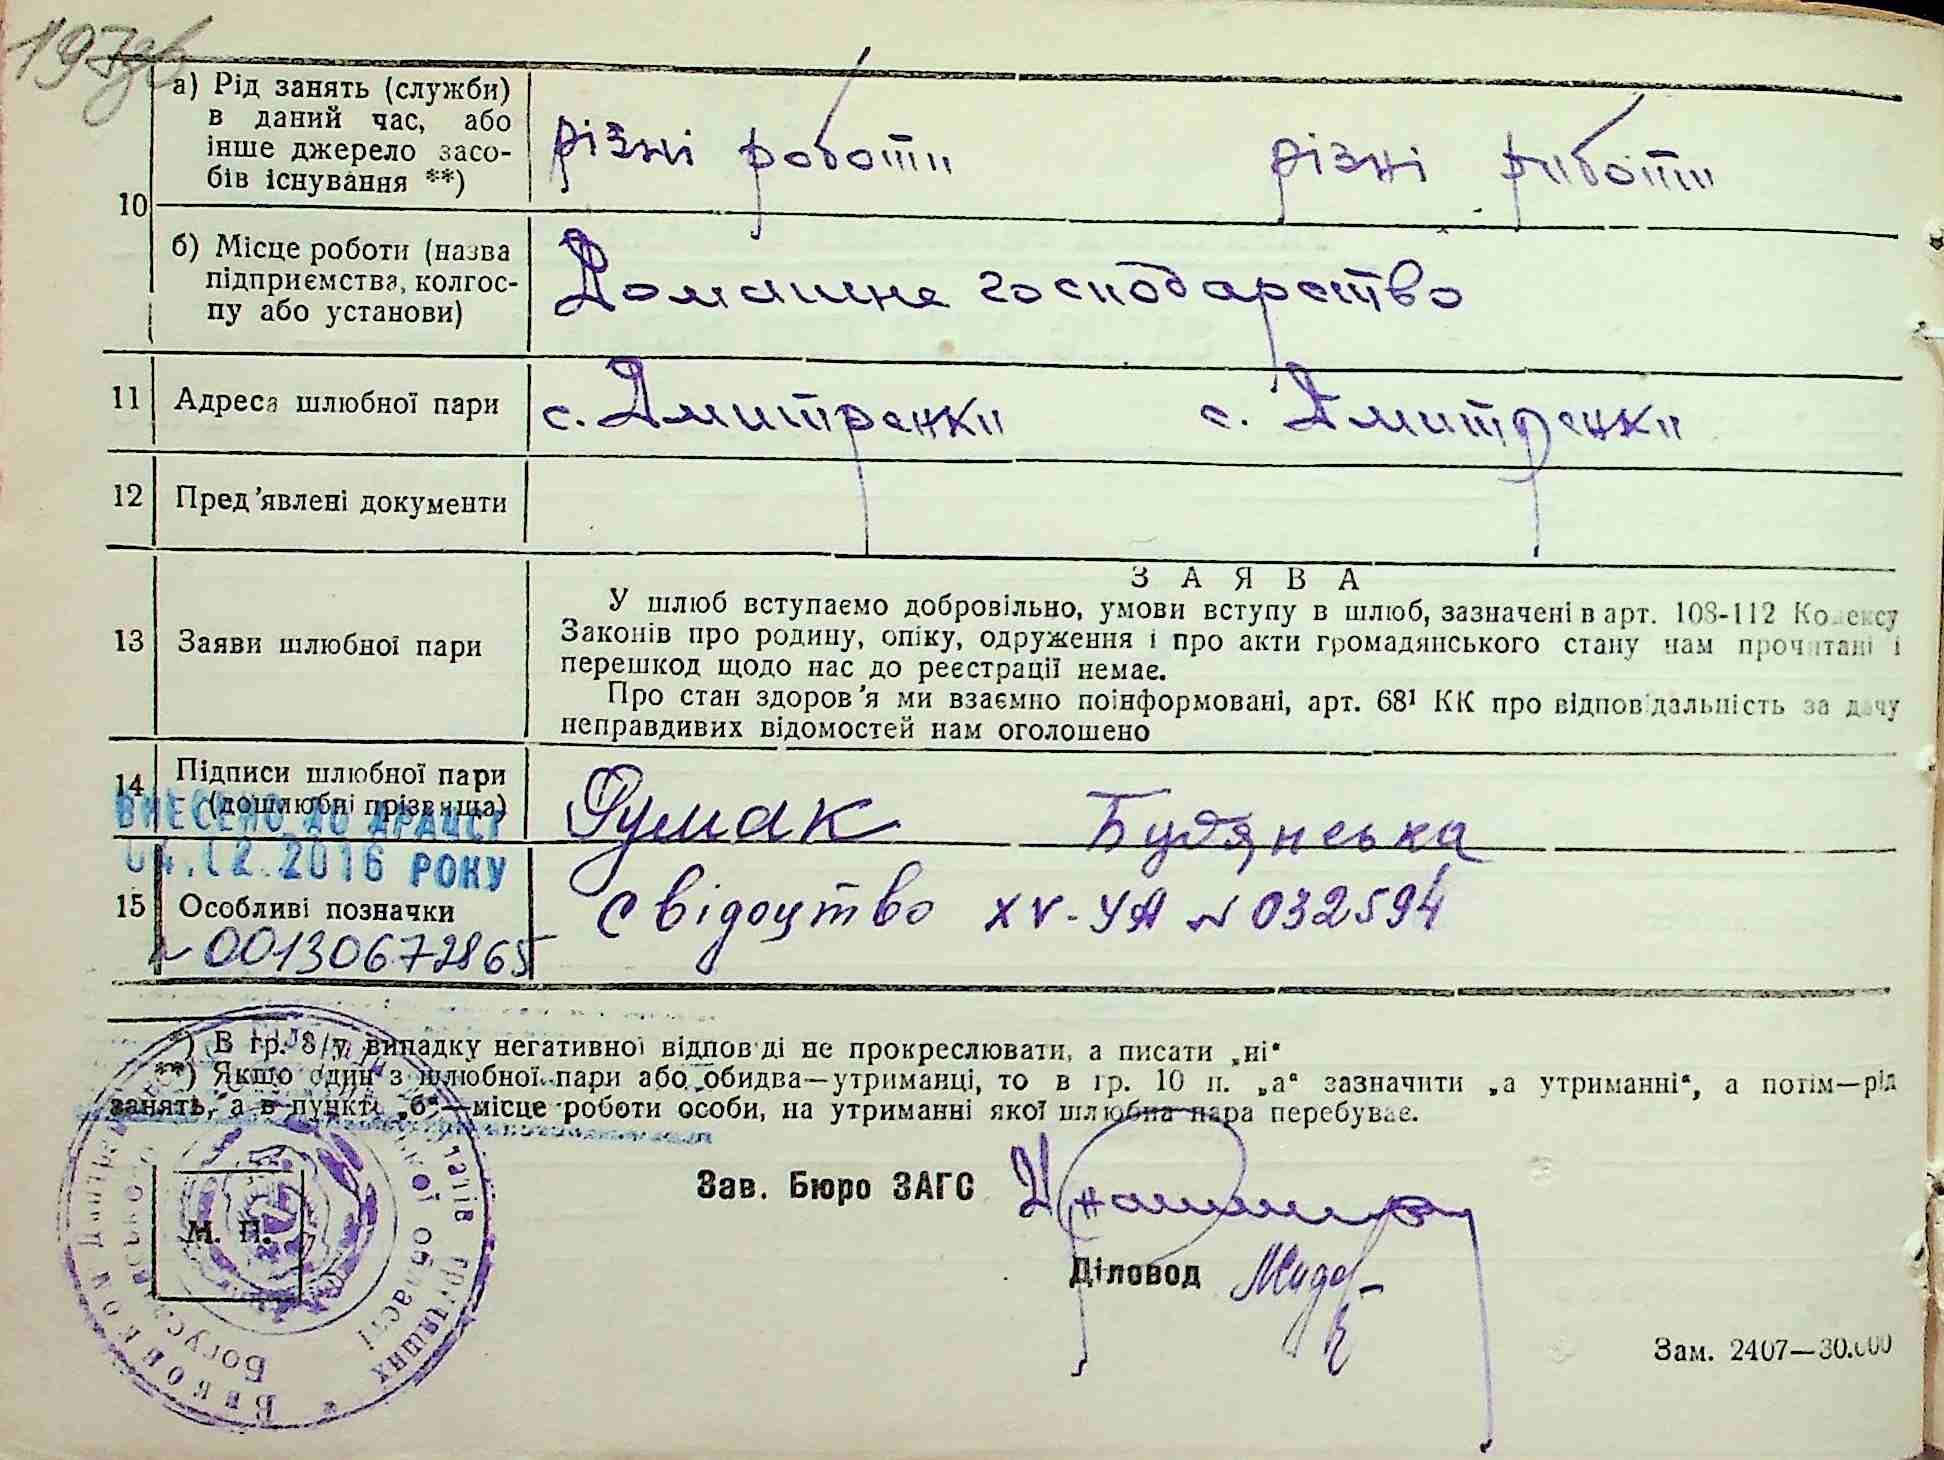 197зв
10
а) Рід занять (служби)
в даний час, або
інше джерело засо-
бів існування **)
різні роботи різні роботи
б) Місце роботи (назва
підприємства, колгос-
пу або установи)
Домашнє господарство
11 Адреса шлюбної пари
с. Дмитренки с. Дмитренки
12 Пред'явлені документи
13 Заяви шлюбної пари
ЗАЯВА
У шлюб вступаємо добровільно, умови вступу в шлюб, зазначені в арт. 108-112 Кодексу
Законів про родину, опіку, одруження і про акти громадянського стану нам прочитані і
перешкод щодо нас до реєстрації немає.
Про стан здоров'я ми взаємно поінформовані, арт. 68¹ КК про відповідальність за дачу
неправдивих відомостей нам оголошено
14 Підписи шлюбної пари
(дошлюбні прізвища)
Думак Будянська
ВНЕСЕНО ДО ДРАЦСГ
04.12.2016 РОКУ
15 Особливі позначки
свідоцтво XV-УА № 032594
№ 00130672865
*) В гр. 8 у випадку негативної відповіді не прокреслювати, а писати „ні“
**) Якщо один з шлюбної пари або обидва—утриманці, то в гр. 10 п. „а“ зазначити „а утриманні“, а потім—рід
занять, а в пункті „б“—місце роботи особи, на утриманні якої шлюбна пара перебуває.
Зав. Бюро ЗАГС
М. П.
Діловод
Зам. 2407—30.000